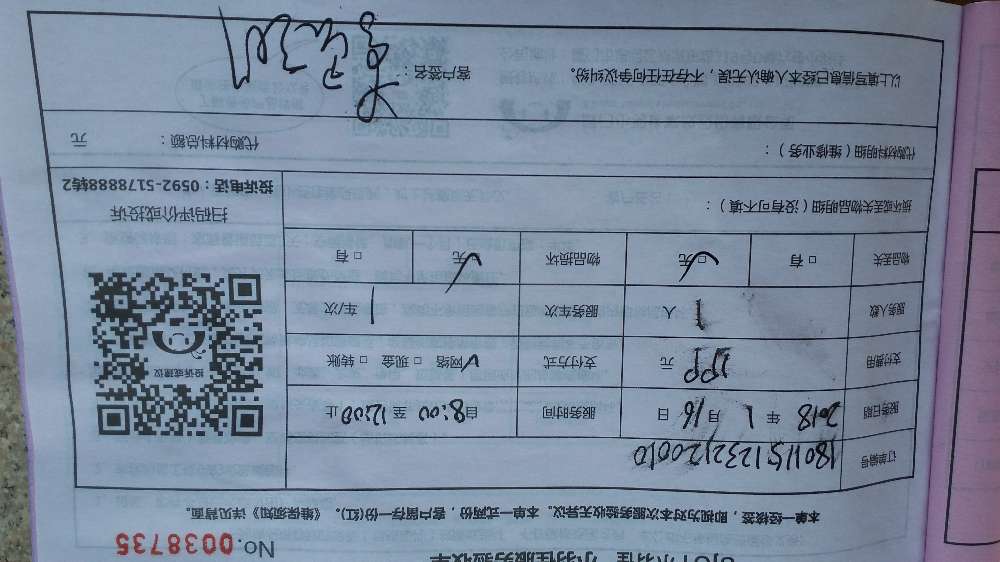 小羽佳服务验收单
No.0038735
本单一经接签，即视为对本次服务验收无异议。本单一式两份，客户留存一份(红)。《维保须知》详见背面。
订单编号 180115123212010
服务日期 2018 年 1 月 16 日 服务时间 自 8:00 至 12:00 止
支付费用 元 支付方式 √网络 □ 现金 □ 转账
服务人数 1 人 服务车次 1 车/次
物品丢失 □ 有 □ 无 √ 物品损坏 □ 无 √ □ 有
损坏或丢失物品明细（没有可不填）：
投诉或建议
扫码评价或投诉
投诉电话：0592-5178888转2
代购材料明细（维修业务）： 代购材料总额： 元
以上填写信息已经本人确认无误，不存在任何争议纠纷。 客户签名：